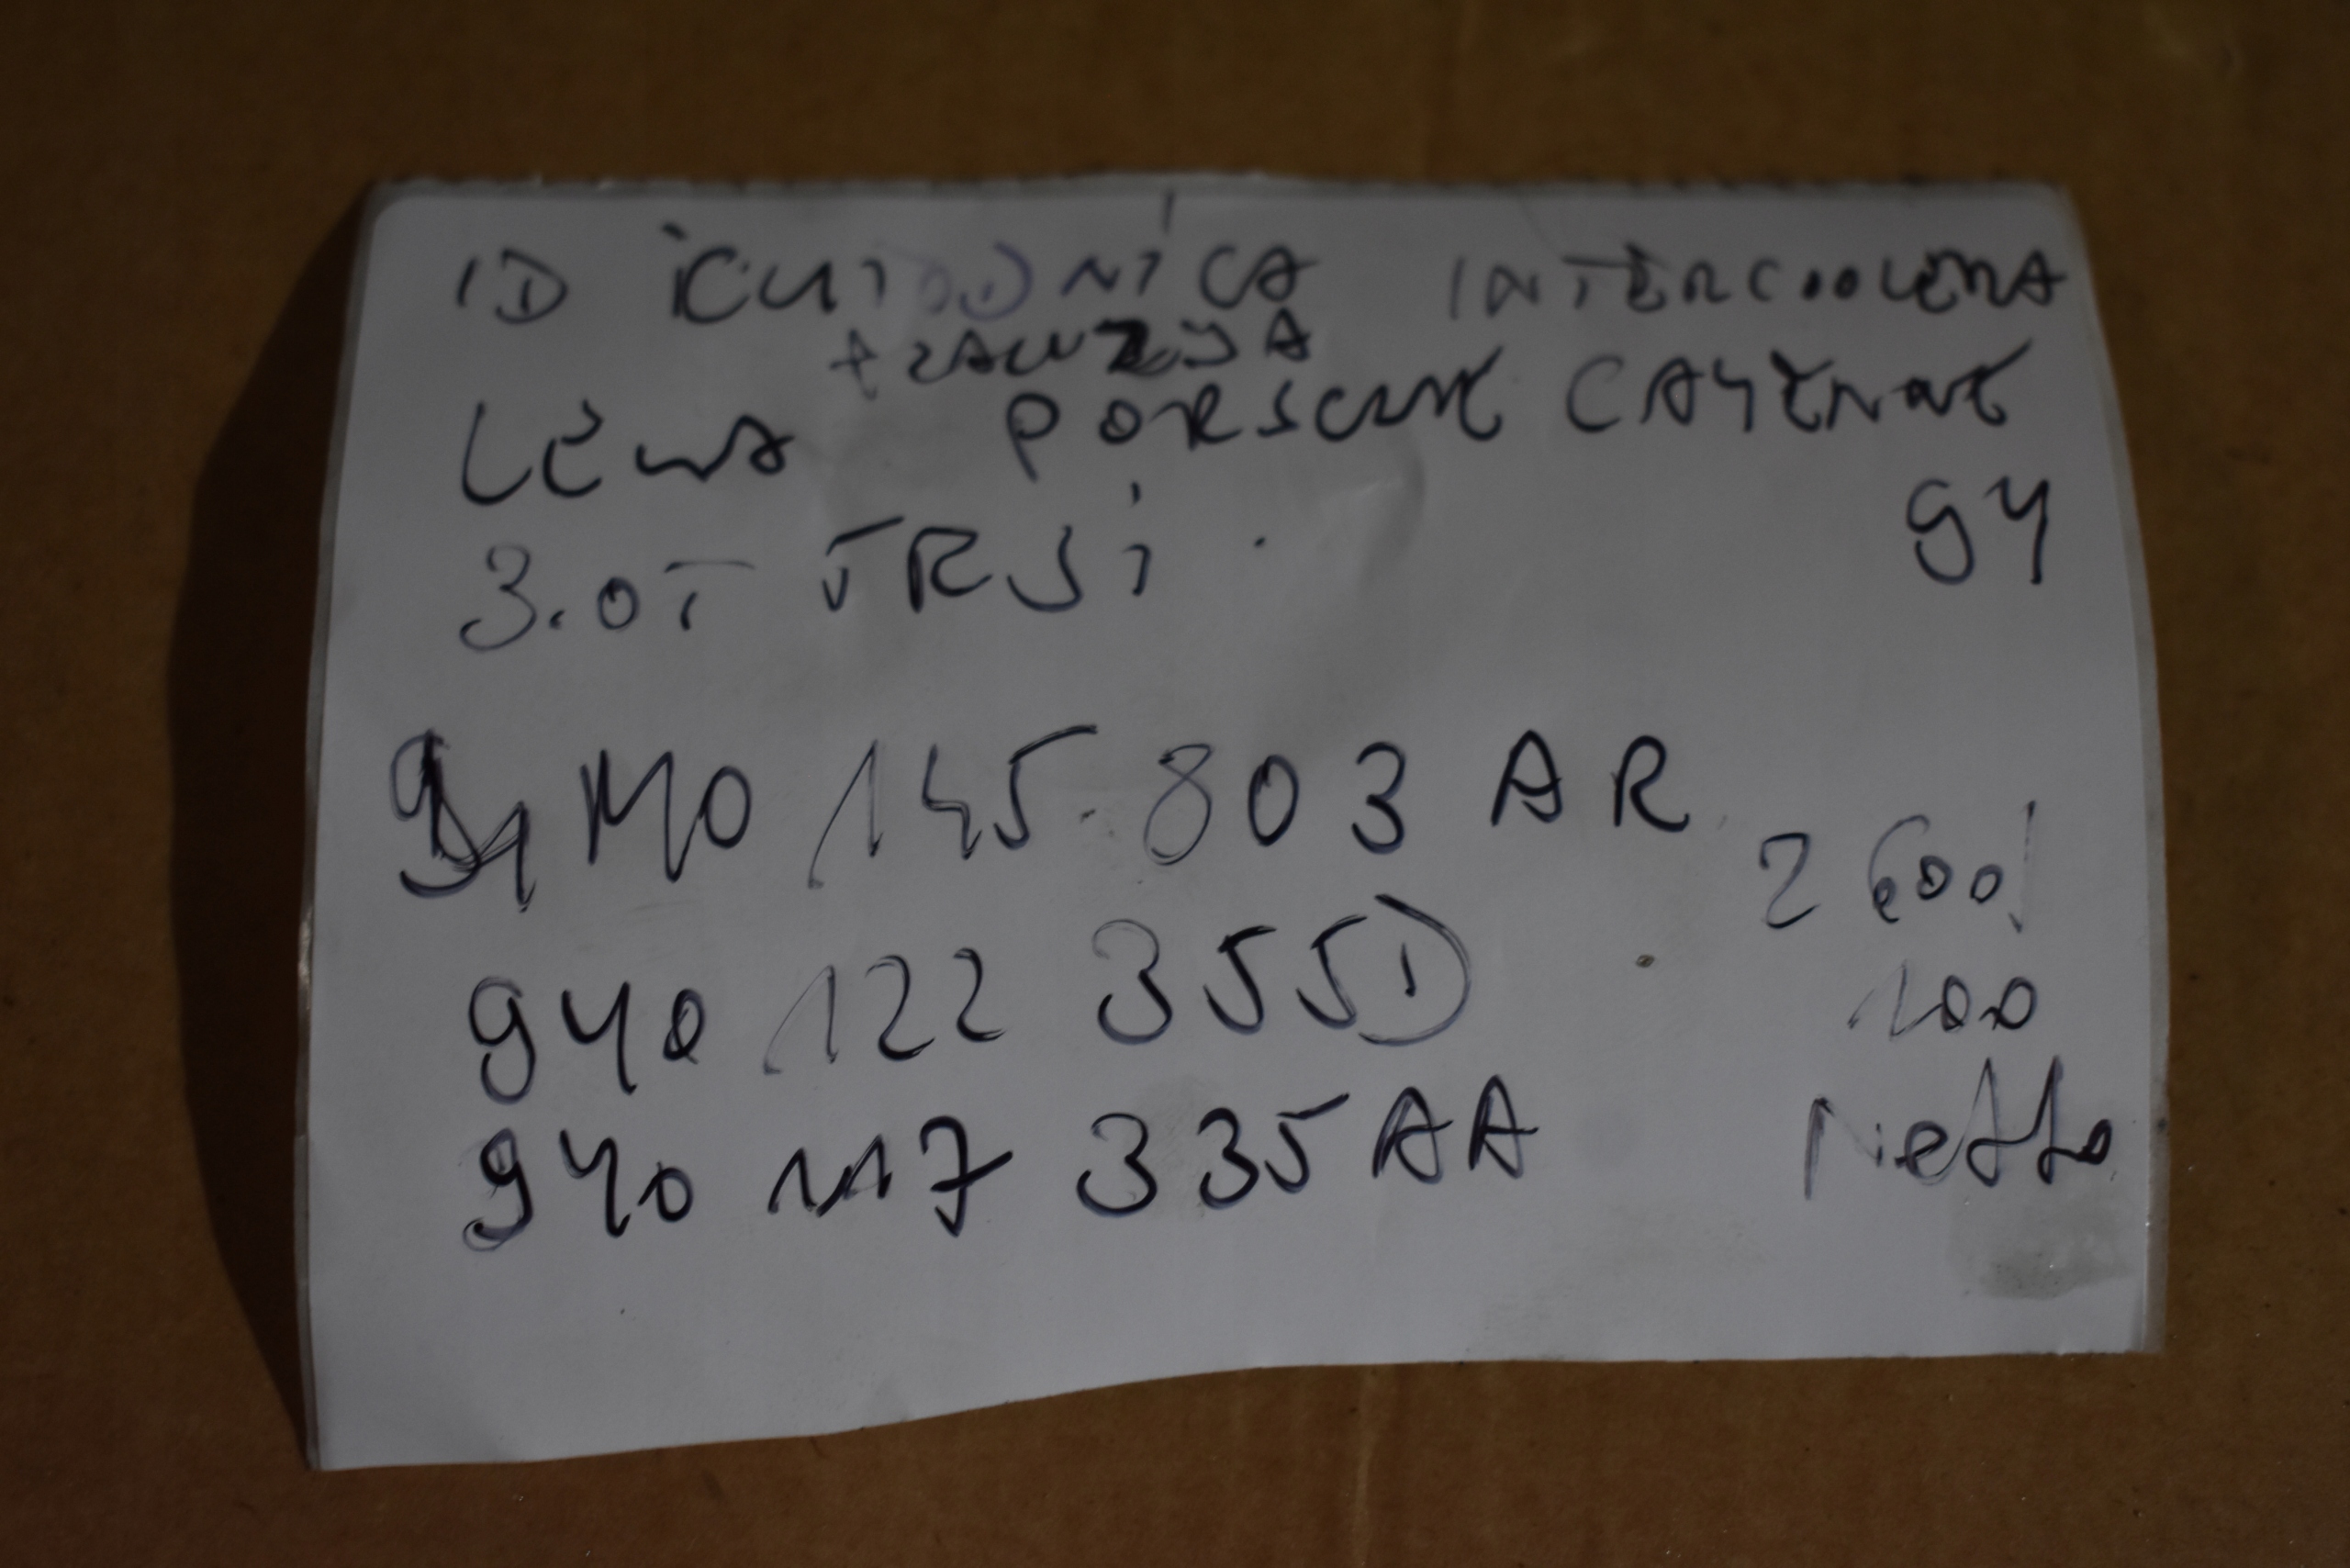 ID CHŁODNICA INTERCOOLERA
+ ŻALUZJA
LEWA PORSCHE CAYENNE
3.0T V6 9Y
9Y0 145 803 AR
2600
9Y0 122 355 D
100
9Y0 117 335 AA
Netto